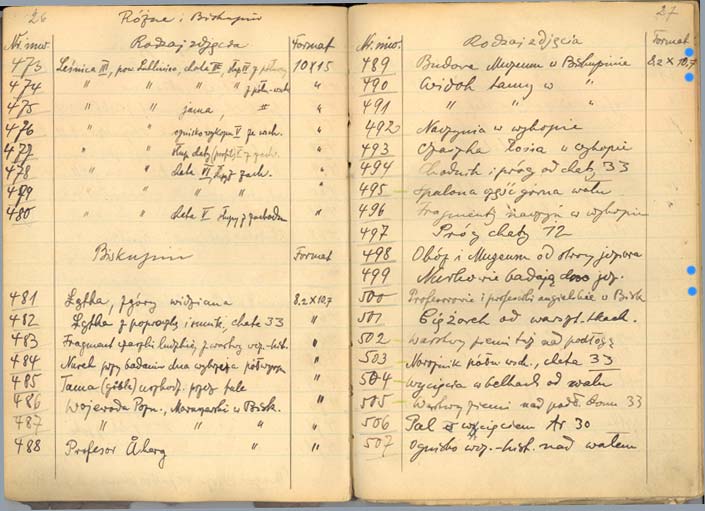 26
Różne i Biskupin
Nr. inw. Rodzaj zdjęcia Format
473 Leśnica III, pow. Lubliniec, chata III, słup z półn. 10x15
474 " " " z płn.-wsch "
475 " " jama, II "
476 " " ognisko wykop. V ze wsch. "
477 " " słup chaty (profil) z zach. "
478 " " chata VI, z zach. "
479 " " " " "
480 " " chata V słupy z zachodu "
Biskupin Format
481 Łyżka, z góry widziana 8.2 x 10,7
482 Łyżka z chata 33 "
483 Fragment czaszki ludzkiej, z warstwy wcz.-hist. "
484 Nurek przy badaniu dna wybrzeża półwyspu "
485 Tama przez fale "
486 Wojewoda Pozn., Maruszewski w Bisk. "
487 " " "
488 Profesor Åberg " "
27
Nr. inw. Rodzaj zdjęcia Format
489 Budowa Muzeum w Biskupinie 8,2 x 10,7
490 Widok tamy w "
491 " " "
492 Naczynia w wykopie
493 Czaszka łosia w wykopie
494 Chodnik i próg od chaty 33
495 Spalona część górna wału
496 Fragmenty naczyń w wykopie
497 Próg chaty 12
498 Obóz i Muzeum od strony jeziora
499 Nurkowie badają dno jez.
500 Profesorowie i angielskie w Bisk
501 Ciężarek od warszt. tkack.
502 Warstwy ziemi tuż nad podłogą
503 Narożnik półn. wsch., chata 33
504 wycięcia w belkach od wału
505 Warstwy ziemi nad podł. domu 33
506 Pal z wycięciem Ar 30
507 Ognisko wcz.-hist. nad wałem